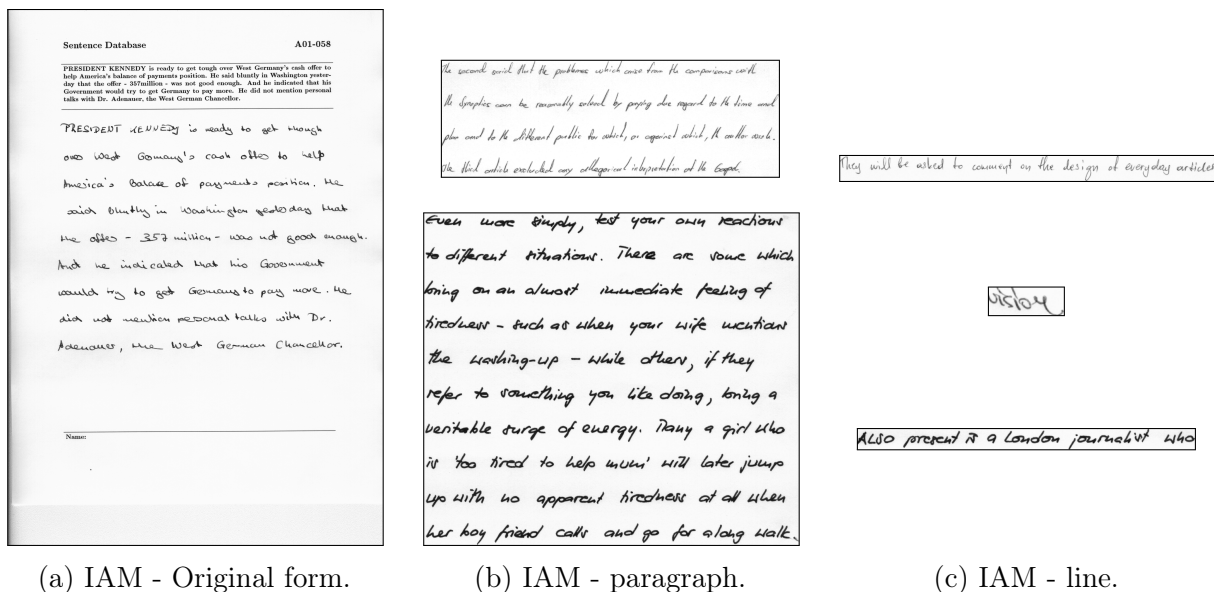 Sentence Database A01-058
PRESIDENT KENNEDY is ready to get tough over West Germany's cash offer to
help America's balance of payments position. He said bluntly in Washington yester-
day that the offer - 357million - was not good enough. And he indicated that his
Government would try to get Germany to pay more. He did not mention personal
talks with Dr. Adenauer, the West German Chancellor.
PRESIDENT KENNEDY is ready to get though
over West Germany's cash offer to help
America's Balance of payments position. He
said bluntly in Washington yesterday that
the offer - 357 million - was not good enough.
And he indicated that his Government
would try to get Germany to pay more. He
did not mention personal talks with Dr.
Adenauer, the West German Chancellor.
Name:
(a) IAM - Original form.
The second said that the problems which arise from the comparisons with
the Synoptics can be reasonably solved by paying due regard to the time and
plan and to the different public for which, or against which, the author wrote.
The third article excluded any allegorical interpretation of the Gospel.
Even more simply, test your own reactions
to different situations. There are some which
bring on an almost immediate feeling of
tiredness - such as when your wife mentions
the washing-up - while others, if they
refer to something you like doing, bring a
veritable surge of energy. Many a girl who
is 'too tired to help mum' will later jump
up with no apparent tiredness at all when
her boy friend calls and go for a long walk.
(b) IAM - paragraph.
They will be asked to comment on the design of everyday articles
ALSO present is a London journalist who
(c) IAM - line.